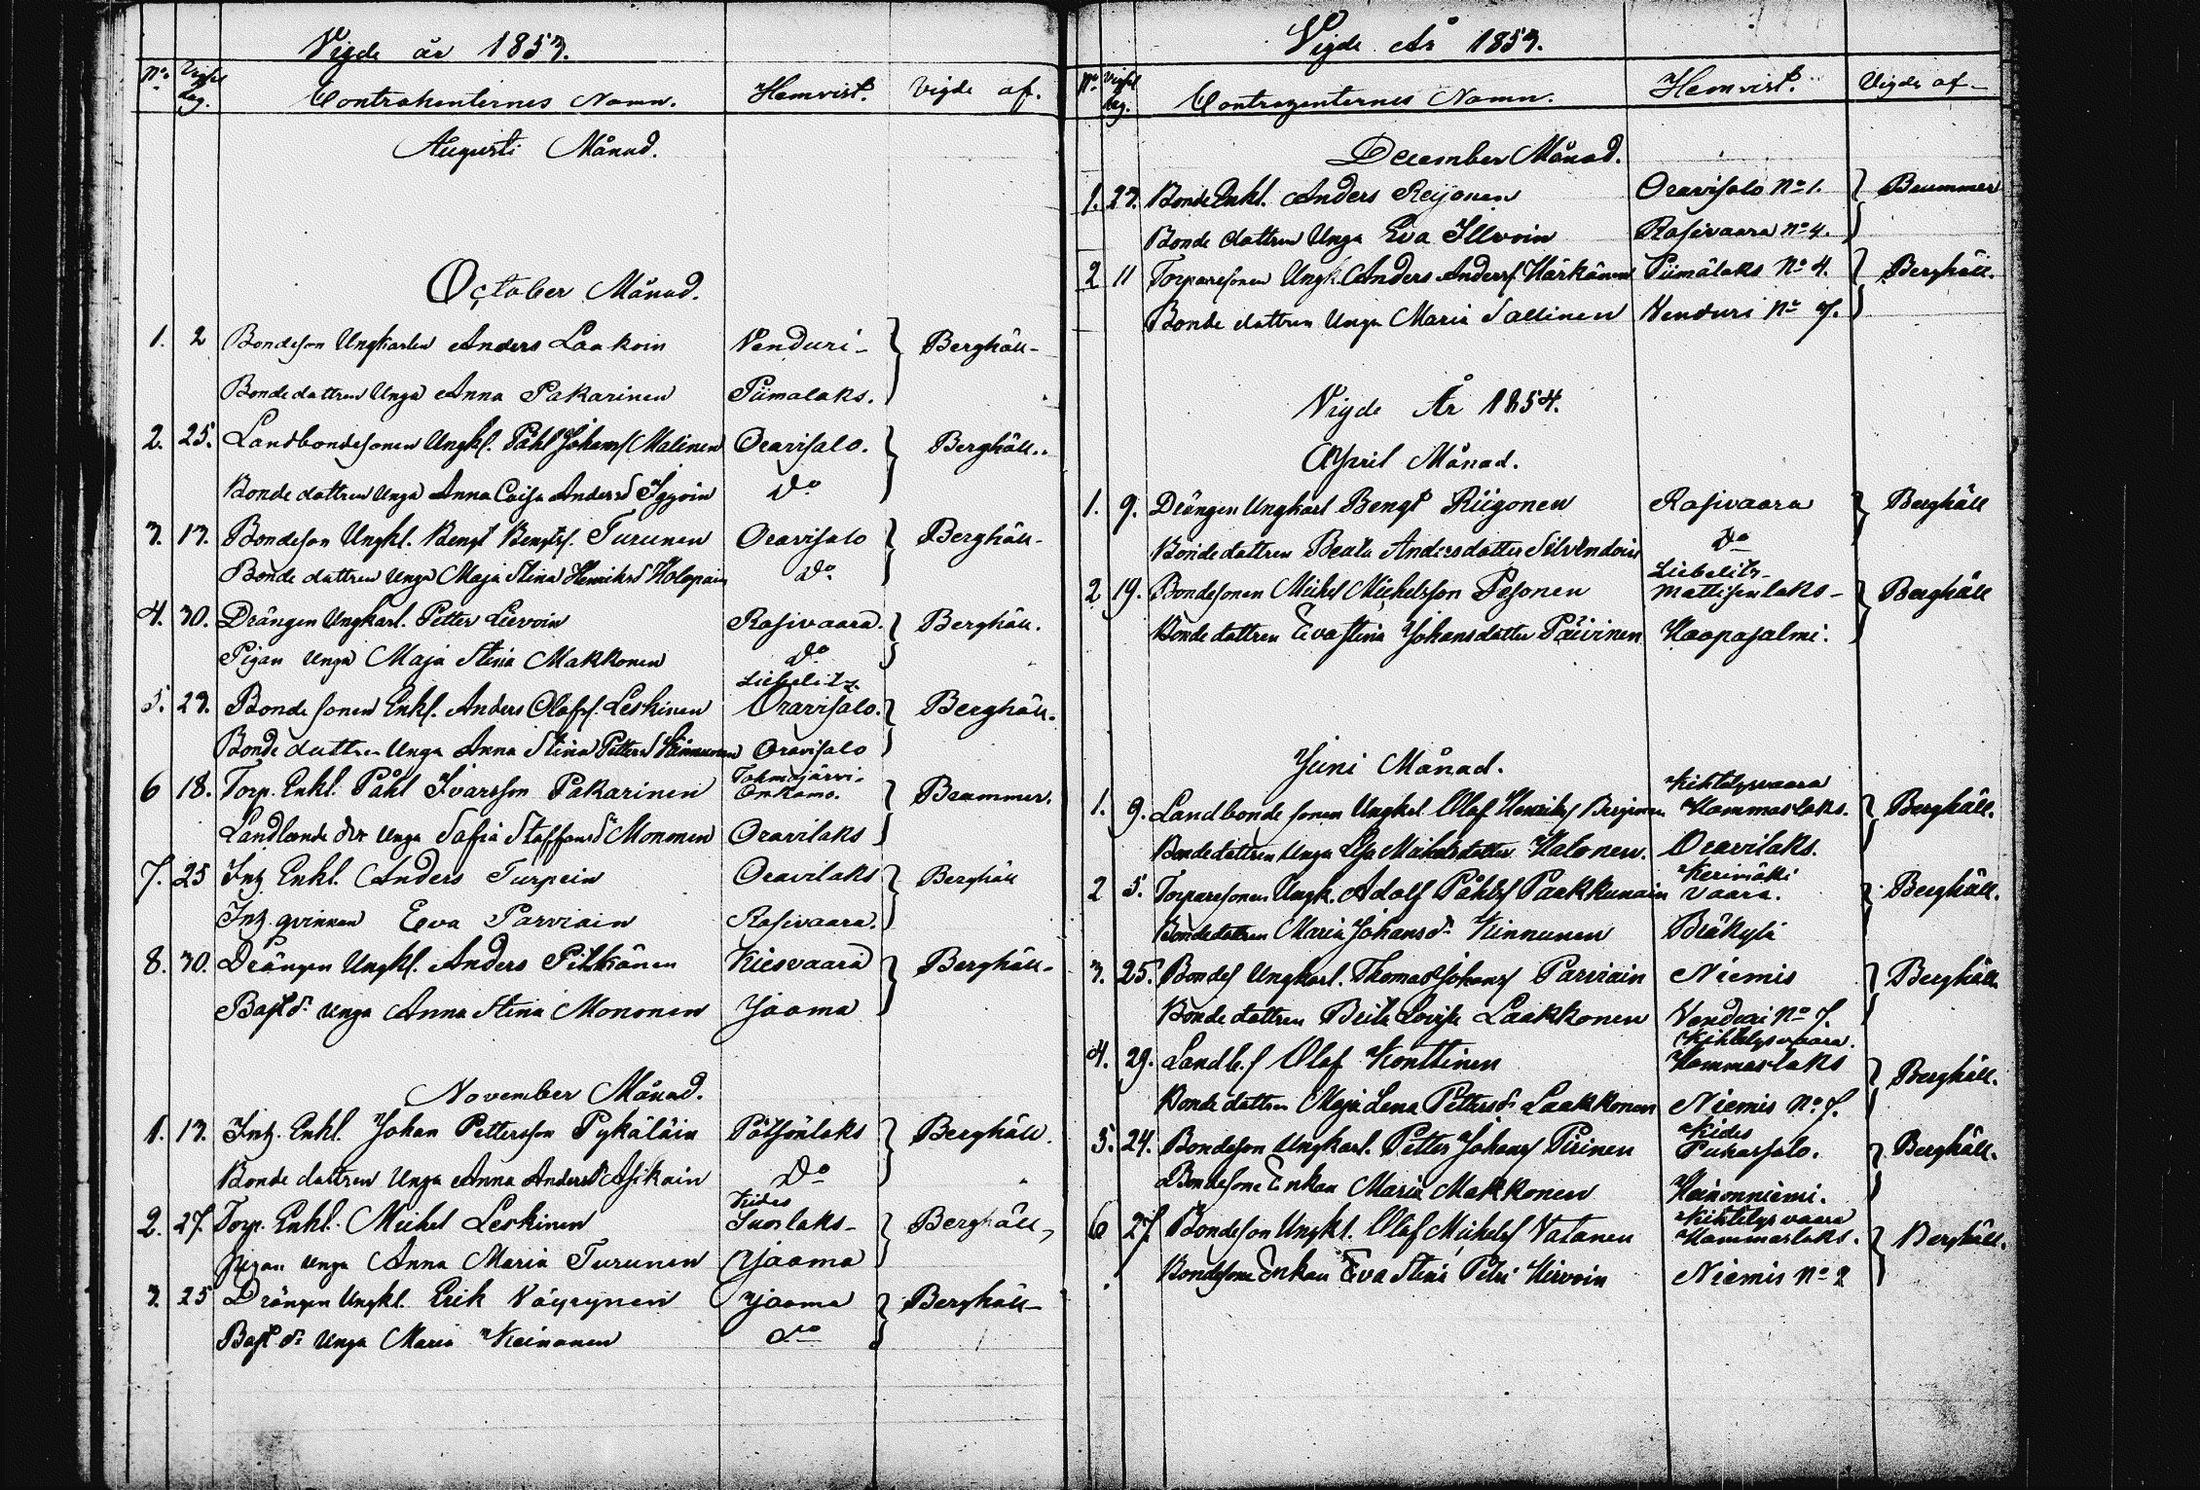 Vigde år 1853.
No. Vigsel dag. Contrahenternes Namn. Hemvist. Vigde af.
Augusti Månad.
October Månad.
1. 2 Bondeson Ungkarlen Anders Laakoin Venduri - Berghäll -
Bondedattren Unga Anna Pakarinen Piimalaks.
2. 25. Landbondesonen Ungkl. Påhl Johanss Malinen Oravisalo. Berghäll..
Bonde dattren Unga Anna Caisa Andersd Do
3. 13. Bondeson Ungkl. Bengt Bengtss. Turunen Oravisalo Berghäll -
Bonde dattren Unga Maja Stina Henriksd Kolopain Do.
4. 30. Drängen Ungkarl. Petter Liervoin Rasivaara. Berghäll.
Pigan Unga Maja Stina Makkonen Do
Liebelitz.
5. 23. Bonde sonen Enkl. Anders Olofss. Leskinen Oravisalo. Berghäll.
Bonde dattren Unga Anna Stina Pettersd Kinnunen Oravisalo
Tohmajärvi -
6 18. Torp. Enkl. Påhl Ivarsson Pakarinen Onkamo. Brummer.
Unga Sofia Staffansd Mononen Oravilaks
7. 25 Inh. Enkl. Anders Turpein Oravilaks Berghäll
Inh. qvinnan Eva Parviain Rasivaara.
8. 30. Drängen Ungkl. Anders Pitkänen Kiesvaara Berghäll -
Unga Anna Stina Mononen Jaama
November Månad.
1. 13. Inh. Enkl. Johan Pettersson Pykäläin Pötsönlaks Berghäll.
Bonde dattren Unga Anna Andersd Asikain Do
Kides
2. 27. Torp. Enkl. Michel Leskinen Suorlaks - Berghäll -
Pigan Unga Anna Maria Turunen Jaama
3. 25 Drängen Ungkl. Erik Väyrynen Jaama Berghäll -
Unga Maria Keinonen do
Vigde År 1853.
No. Vigsel dag. Contragenternes Namn. Hemvist. Vigde af -
December Månad.
1. 23. Bonde Enkl. Anders Reijonen Oravisalo No 1. Brummer
Bonde dattren Unga Eva Illvoin Rasivaara No 4.
2 11 Torparesonen Ungk. Anders Anderss Härkänen Piimälaks No 4. Berghäll.
Bonde dattren Unga Maria Sallinen Venduri No 7.
Vigde År 1854.
April Månad.
1. 9. Drängen Ungkarl Bengt Riigonen Rasivaara Berghäll
Bonde dattren Beata Andersdatter Silvendoin Do
Liebelitz -
2 19. Bondesonen Michel Michelsson Pesonen Mattisenlaks - Berghäll
Bonde dattren Eva Stina Johansdatter Päivinen Haapasalmi.
Juni Månad.
Kihtelysvaara
1. 9. Landbonde sonen Ungkarl Olof Henrikss Hammarlaks. Berghäll.
Bondedattren Unga Lisa Michelsdatter Halonen. Oravilaks.
Kerimäki
2 5. Torparesonen Ungk. Adolf Påhlss Paakkunain Vaara. Berghäll.
Bondedattren Maria Johansd. Kinnunen Bräkylä
3. 25. Bondes Ungkarl. Thomas Johanss Parviain Niemis Berghäll.
Bonde dattren Beita Lovisa Laakkonen Venduri No 7.
Kihtelysvaara.
4. 29. Landb. s Olof Konttinen Hammarlaks Berghäll.
Bonde dattren Maja Lena Pettersd. Laakkonen Niemis No 7.
Kides
5. 24. Bondeson Ungkarl. Petter Johanss Pirinen Pukarsalo. Berghäll.
Bondesone Enkan Maria Makkonen Heinoniemi.
Kihtelysvaara
6 27. Bondeson Ungkl. Olof Michelss Vatanen Hammarlaks. Berghäll.
Bondesone Enkan Eva Stina Petri Hirvoin Niemis No 2